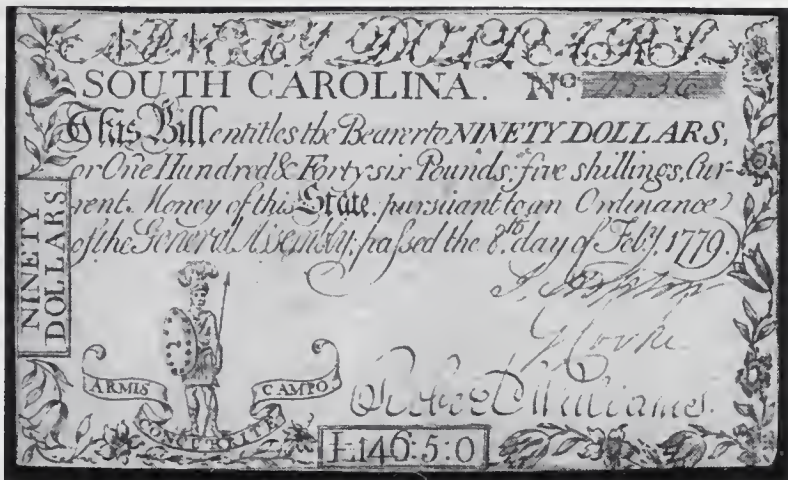 NINETY DOLLARS.
SOUTH CAROLINA. No. 4536
This Bill entitles the Bearer to NINETY DOLLARS,
or One Hundred & Forty six Pounds, five shillings, Cur-
rent Money of this State, pursuant to an Ordinance
of the General Assembly, passed the 8.th day of Feby. 1779.
NINETY
DOLLARS
Williams.
ARMIS
CAMPO
£146:5:0